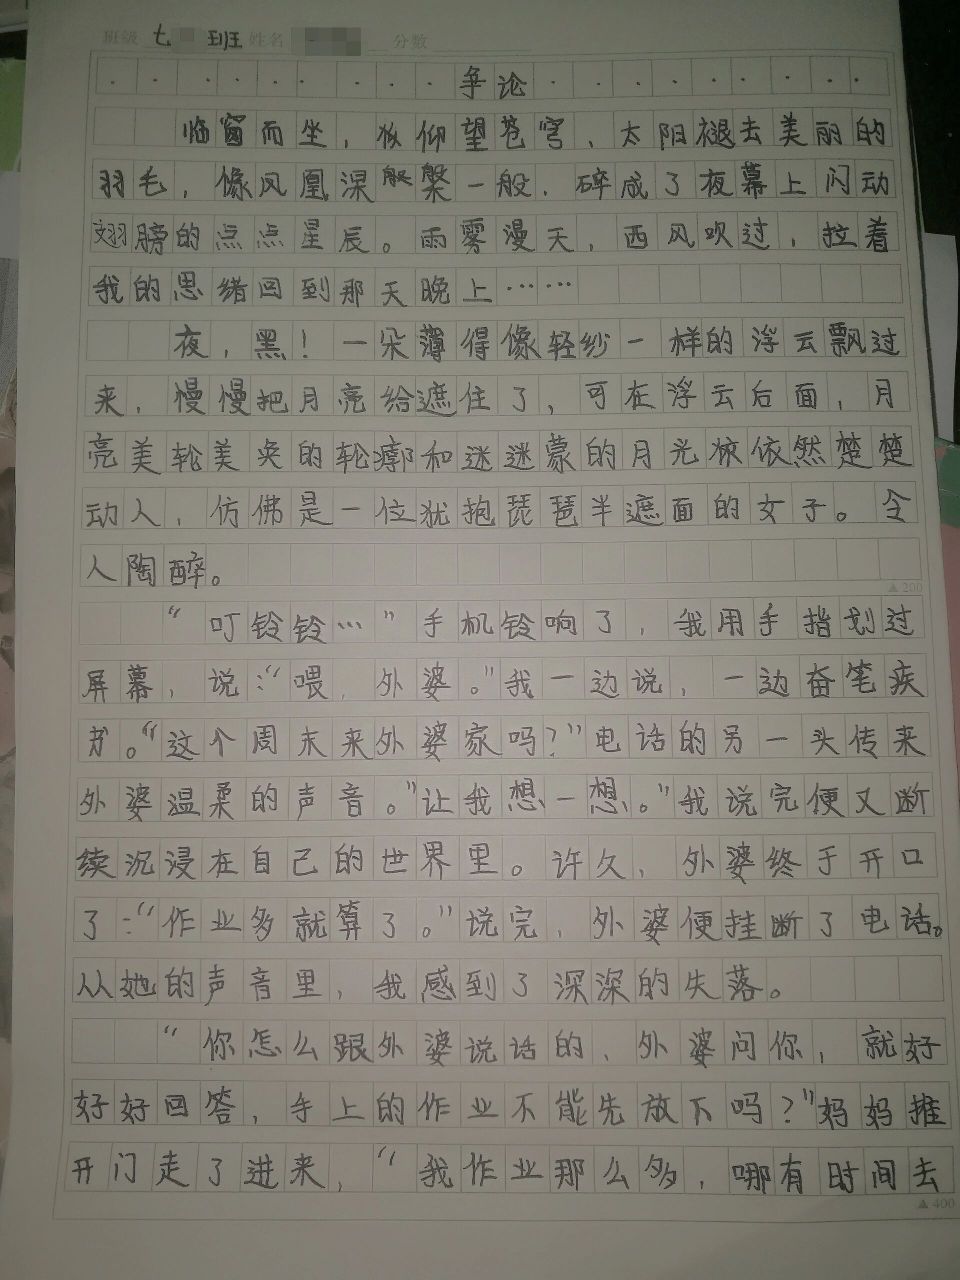 班级 七 班 姓名 分数
争论
临窗而坐，仰望苍穹，太阳褪去美丽的
羽毛，像凤凰涅槃一般，碎成了夜幕上闪动
翅膀的点点星辰。雨雾漫天，西风吹过，拉着
我的思绪回到那天晚上……
夜，黑！一朵薄得像轻纱一样的浮云飘过
来，慢慢把月亮给遮住了，可在浮云后面，月
亮美轮美奂的轮廓和迷迷蒙的月光依依然楚楚
动人，仿佛是一位犹抱琵琶半遮面的女子。令
人陶醉。
▲200
“叮铃铃…”手机铃响了，我用手指划过
屏幕，说：“喂，外婆。”我一边说，一边奋笔疾
书。“这个周末来外婆家吗？”电话的另一头传来
外婆温柔的声音。“让我想一想。”我说完便又断
续沉浸在自己的世界里。许久，外婆终于开口
了：“作业多就算了。”说完，外婆便挂断了电话。
从她的声音里，我感到了深深的失落。
“你怎么跟外婆说话的，外婆问你，就好
好好回答，手上的作业不能先放下吗？”妈妈推
开门走了进来，“我作业那么多，哪有时间去
▲400